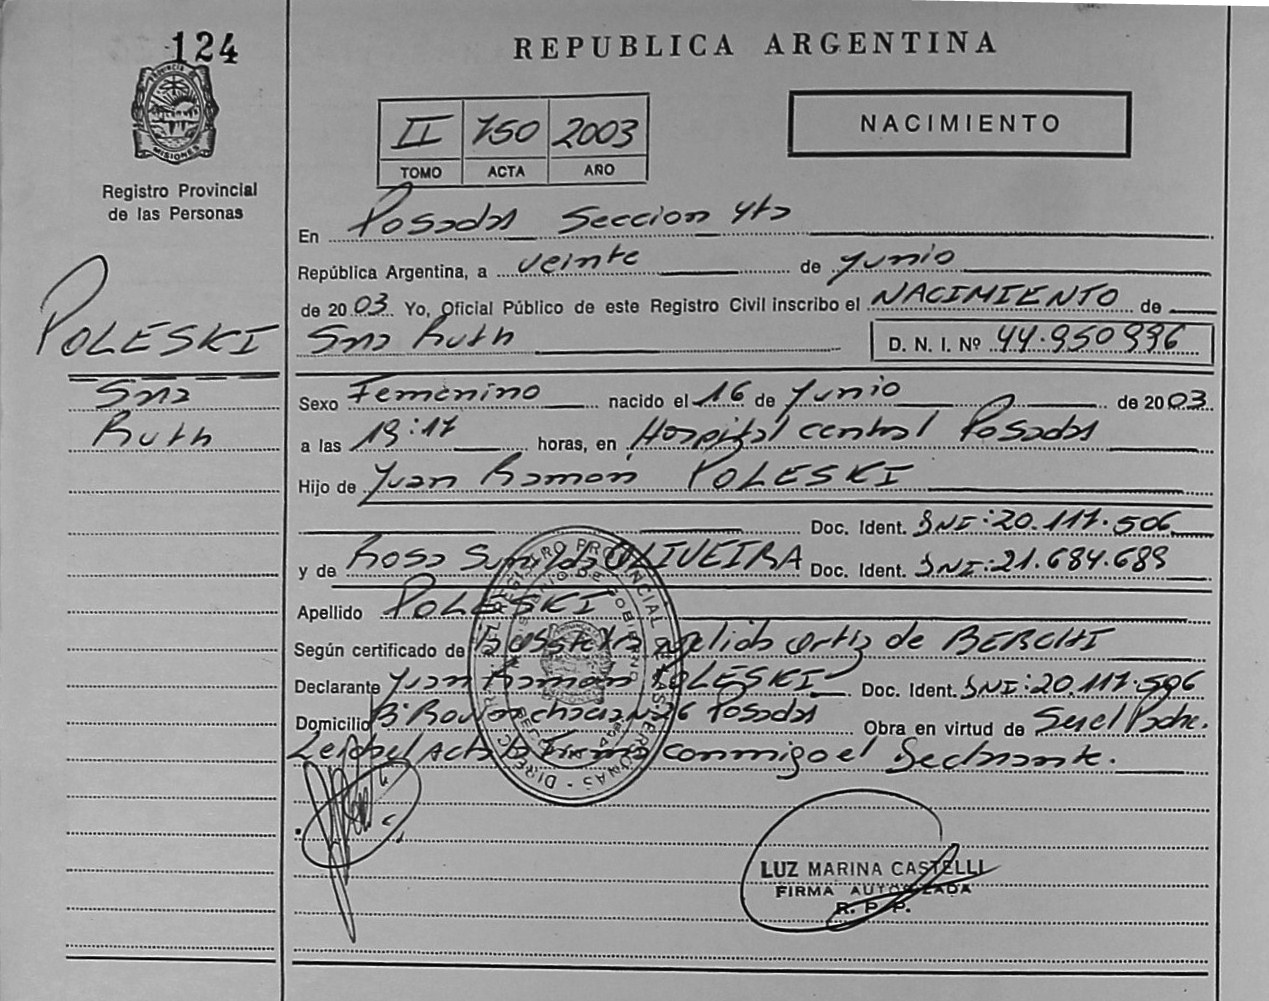 124
REPUBLICA ARGENTINA
PROVINCIA
MISIONES
II 750 2003
TOMO ACTA AÑO
NACIMIENTO
Registro Provincial
de las Personas
En Posadas Seccion 4ta
República Argentina, a veinte de Junio
de 2003 Yo, Oficial Público de este Registro Civil inscribo el NACIMIENTO de
POLESKI
Ana Ruth
D. N. I. Nº 44.950.996
Ana
Ruth
Sexo Femenino nacido el 16 de Junio de 2003
a las 19:17 horas, en Hospital central Posadas
Hijo de Juan Ramon POLESKI
Doc. Ident. DNI:20.117.506
y de Rosa OLIVEIRA Doc. Ident. DNI:21.684.689
Apellido POLESKI
Según certificado de Obstetra ortiz de BERCHI
Declarante Juan Ramon POLESKI Doc. Ident. DNI:20.117.506
Domicilio Bº Posadas Obra en virtud de Ser el Padre.
Leida el Acta la Firma conmigo el Declarante.
LUZ MARINA CASTELLI
FIRMA AUTORIZADA
R. P. P.